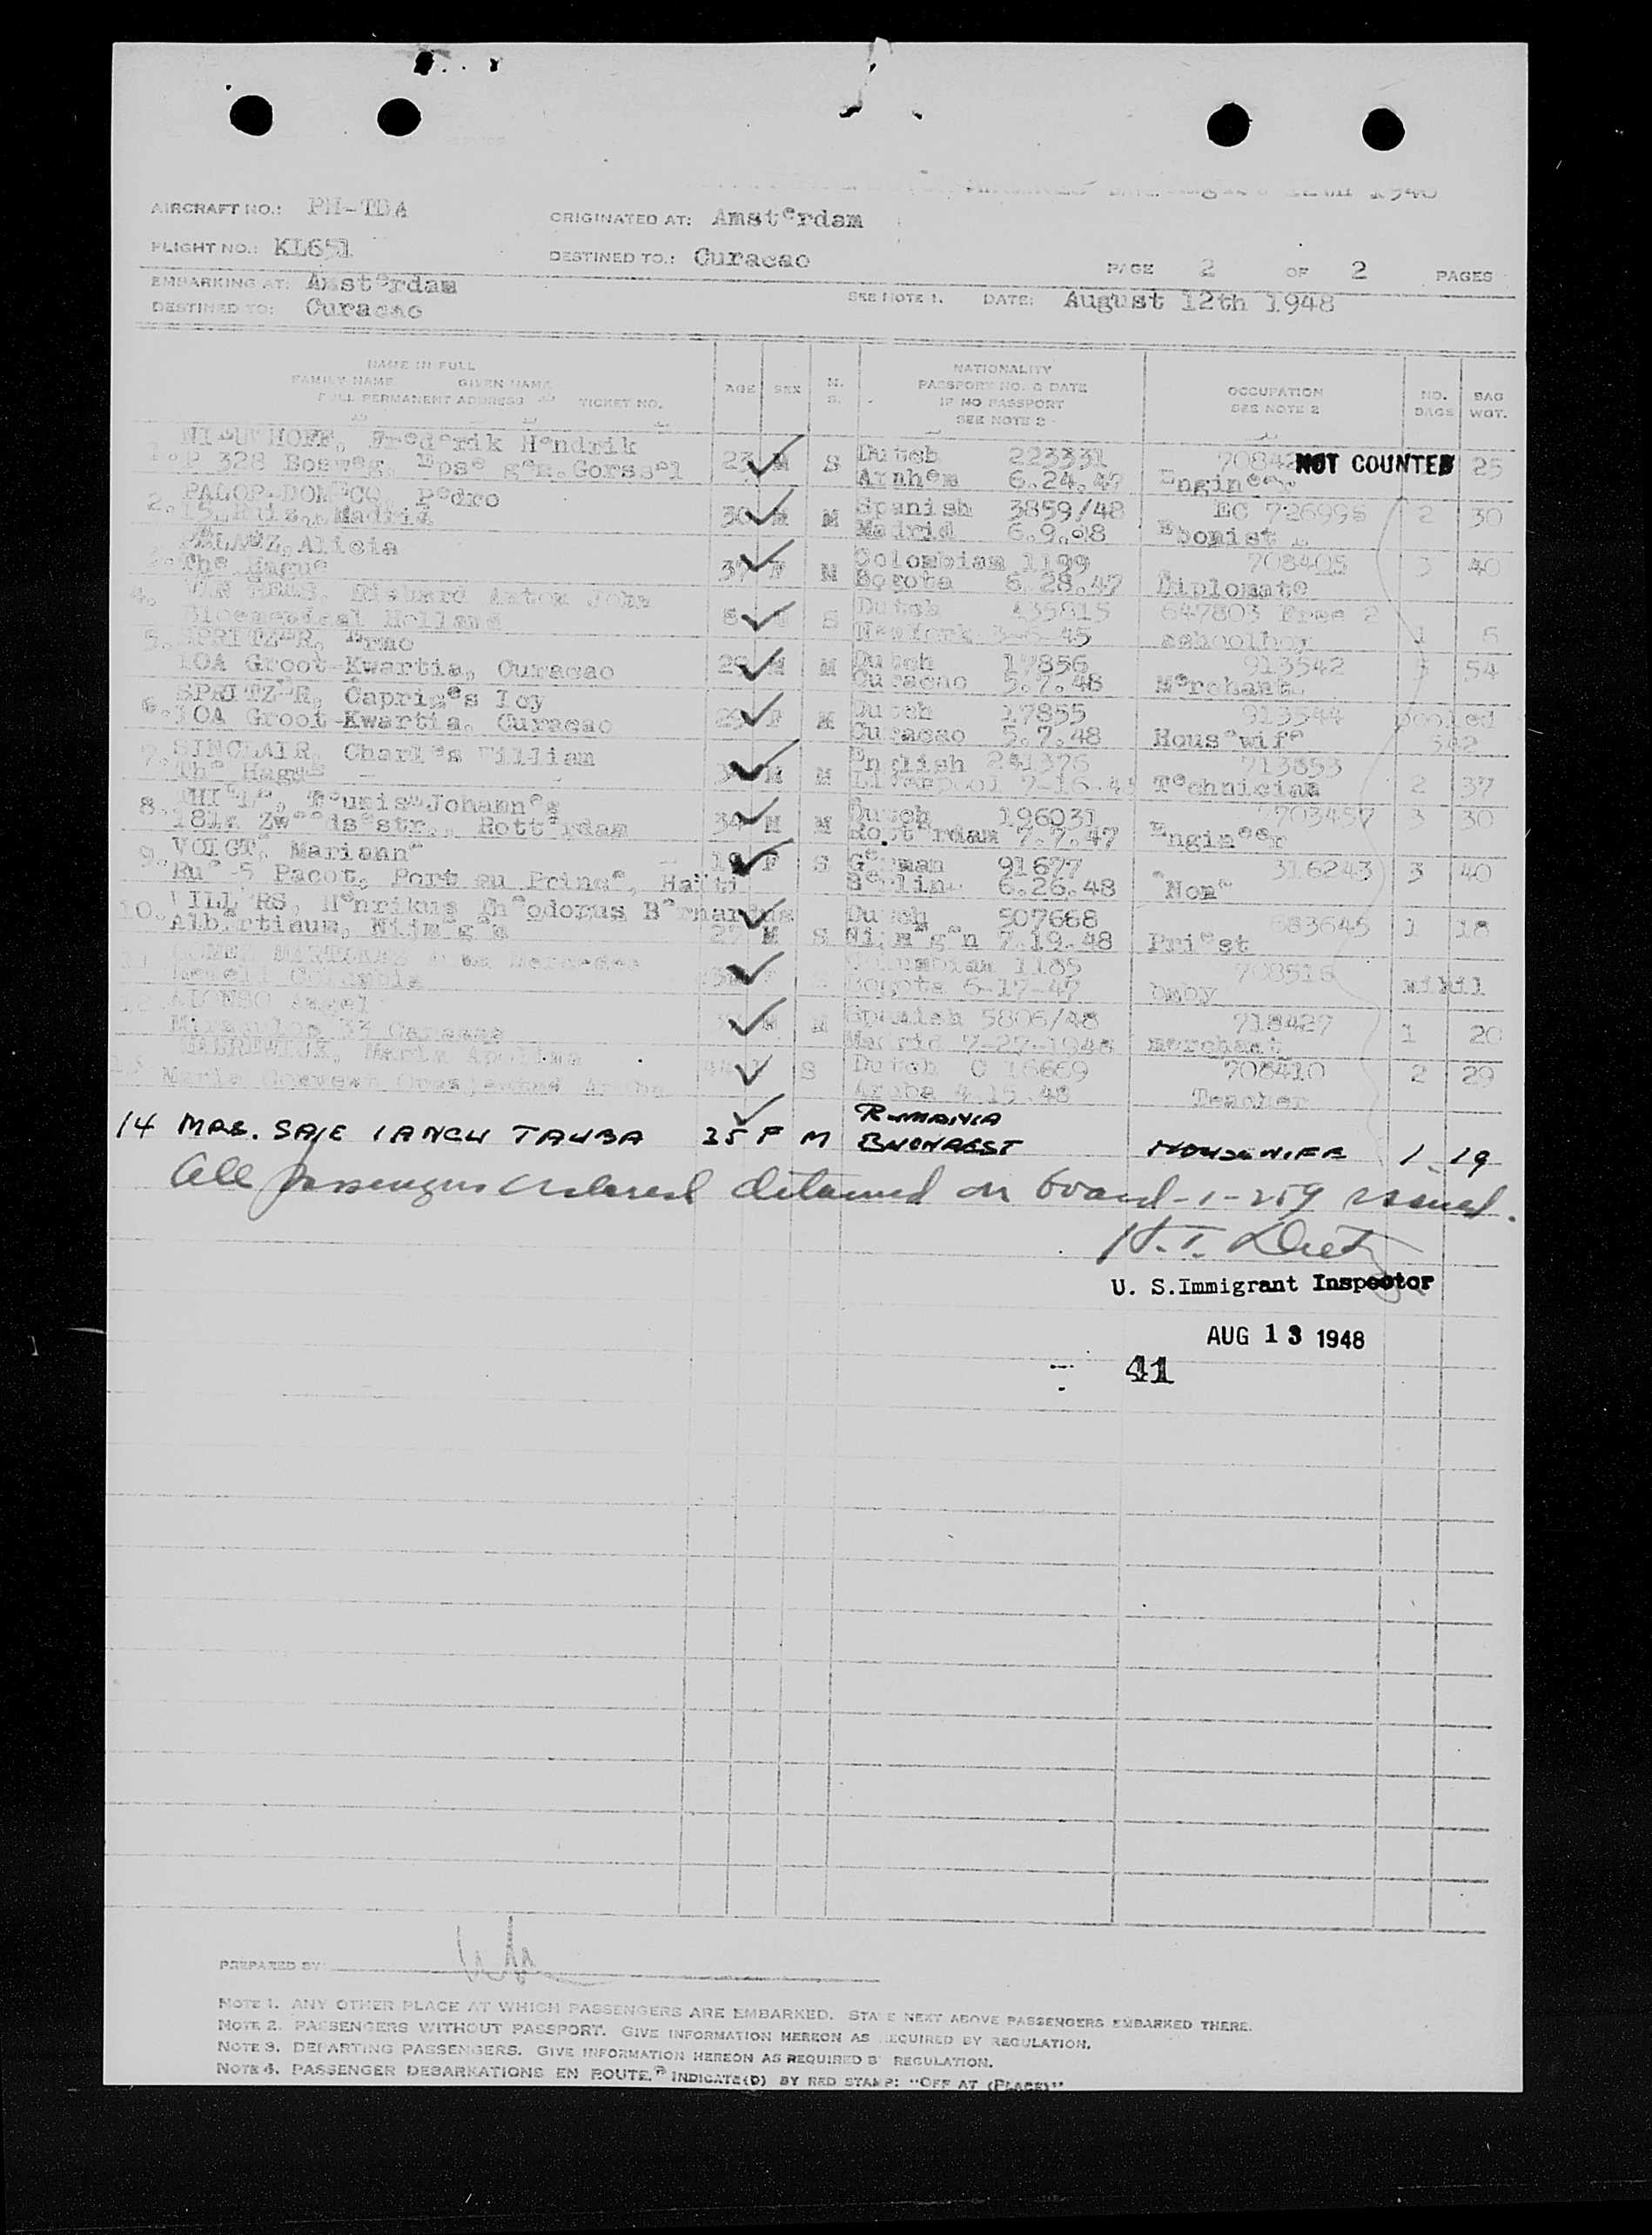 AIRCRAFT NO.: PH-TDA
ORIGINATED AT: Amsterdam
FLIGHT NO.: KL651
DESTINED TO.: Curacao
PAGE 2 OF 2 PAGES
EMBARKING AT: Amsterdam
SEE NOTE 1. DATE: August 12th 1948
DESTINED TO: Curacao
NAME IN FULL
FAMILY NAME GIVEN NAME
FULL PERMANENT ADDRESS TICKET NO.
AGE SEX M. S.
NATIONALITY
PASSPORT NO. & DATE
IF NO PASSPORT
SEE NOTE 2
OCCUPATION
SEE NOTE 2
NO. BAGS
BAG WGT.
Frederik Hendrik Dutch 223331
1. P 328 Bosweg, Epse gem. Gorssel 23 M S Arnhem 6.24.47 Engineer NOT COUNTED 25
PALOP-DOMECQ, Pedro Spanish 3859/48 EC 726995
2. Madrid 30 M M Madrid 6.9.48 2 30
PELAEZ, Alicia Colombian 1199 708405
3. The Hague 37 F M Bogota 6.28.47 Diplomate 3 40
4. Richard Anton John Dutch 647803 Free 2
Bloemendaal Holland S New York 3-6-45 schoolboy 1
5. SPRITZER, Erno Dutch 17856 913542
10A Groot-Kwartia, Curacao 29 M M Curacao 5.7.48 Merchant. 3 54
SPRITZER, Dutch 17855 913544 pooled
6. 10A Groot-Kwartia, Curacao 29 F M Curacao 5.7.48 Housewife
7. SINCLAIR, Charles William English 241376 713853
The Hague M M Liverpool 7-16-48 Technician 2 37
8. Teunis Johannes Dutch 196031 703457
Rotterdam 34 M M Rotterdam 7.7.47 Engineer 3 30
9. VOIGT, Marianne 19 F S German 91677 316243 3 40
Rue 5 Pacot, Port au Prince, Haïti Berlin 6.26.48 None
10. WILLERS, Henrikus Theodorus Bernardus Dutch 507668 683645 1 18
Albertinum, Nijmegen 27 M S Nijmegen 7.19.48 Priest
11. GOMEZ MARTINEZ Mercedes Columbian 1185 708516
Colombia Bogota 6-17-47 baby nihil
12. ALONSO Angel Spanish 5806/48 718427
33 Caracas M M Madrid 7-27-1948 merchant 1 20
13. Maria Apolina 44 F S Dutch 708410 2 29
Aruba Aruba 4.15.48 Teacher
RUMANIA
14 MRS. SAIE IANCU TAUBA 25 F M BUCHAREST HOUSEWIFE 1 19
All passengers ordered detained on board - I-259 issued.
H. T. Dietz
U. S. Immigrant Inspector
AUG 13 1948
41
PREPARED BY
NOTE 1. ANY OTHER PLACE AT WHICH PASSENGERS ARE EMBARKED. STATE NEXT ABOVE PASSENGERS EMBARKED THERE.
NOTE 2. PASSENGERS WITHOUT PASSPORT. GIVE INFORMATION HEREON AS REQUIRED BY REGULATION.
NOTE 3. DEPARTING PASSENGERS. GIVE INFORMATION HEREON AS REQUIRED BY REGULATION.
NOTE 4. PASSENGER DEBARKATIONS EN ROUTE. INDICATE(D) BY RED STAMP: "OFF AT (PLACE)"